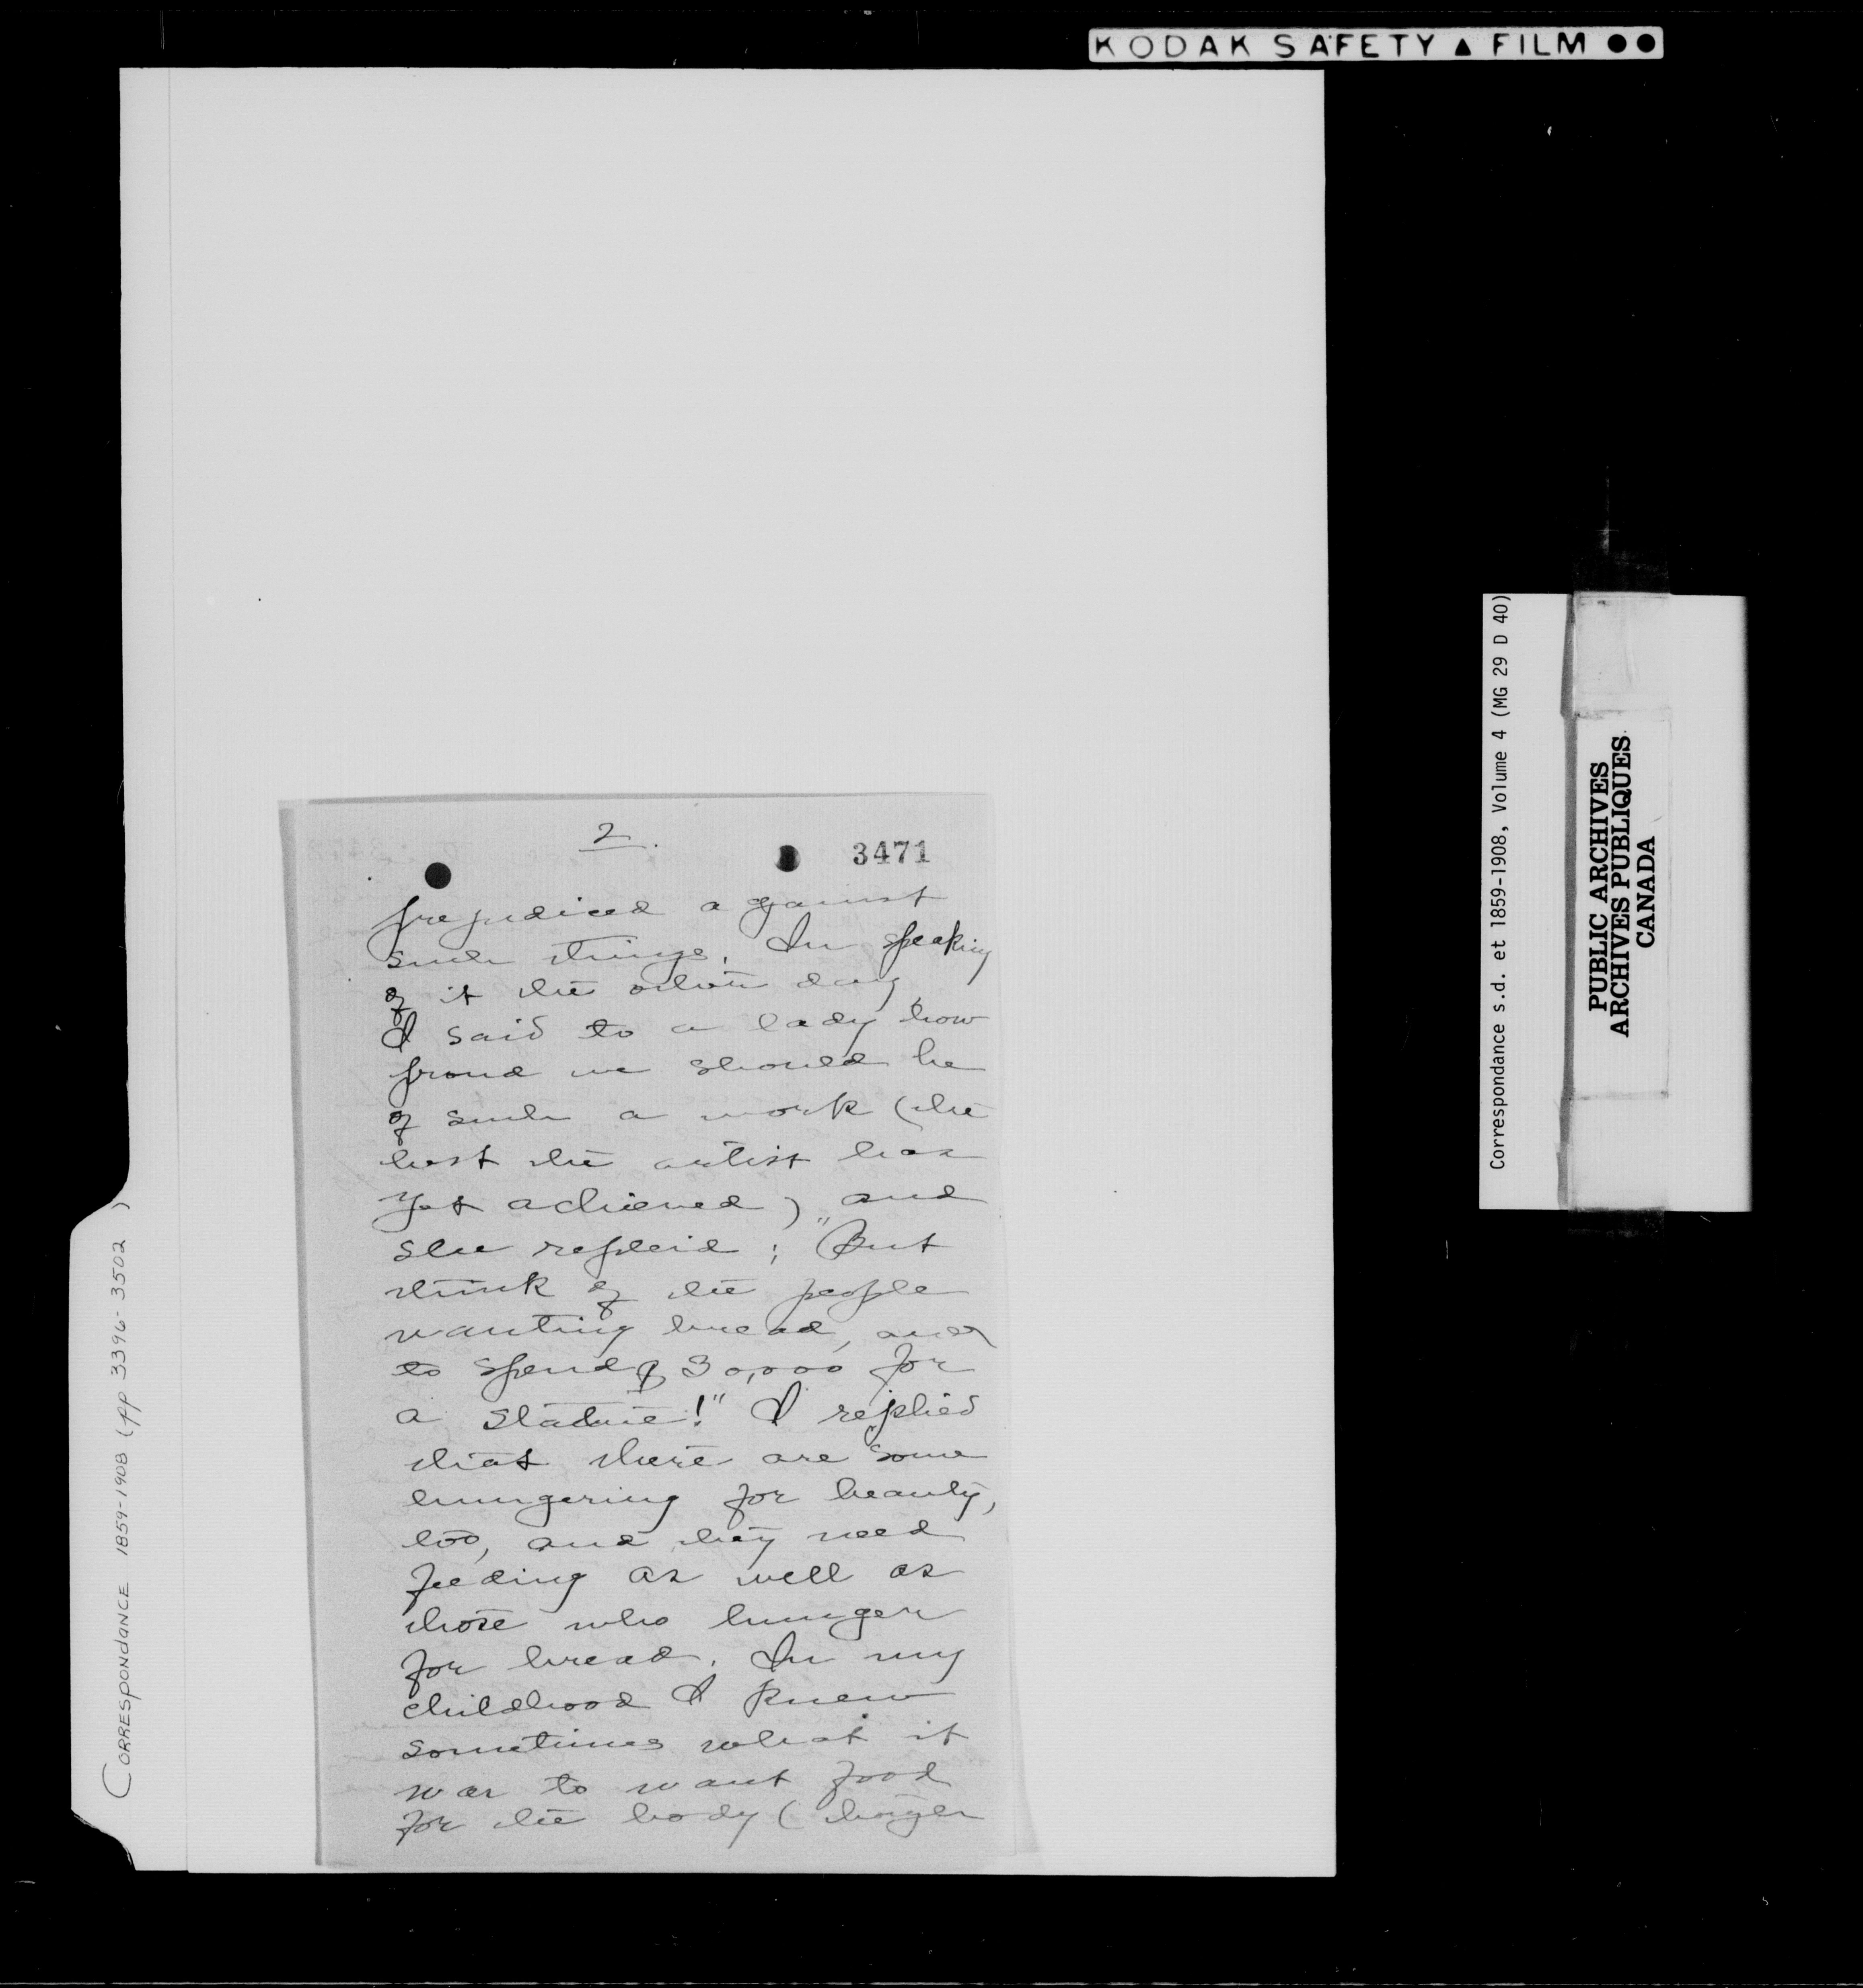 KODAK SAFETY ▲ FILM ●●
2.
3471
prejudiced against
such things. In speaking
of it the other day,
I said to a lady how
proud we should be
of such a work (the
best the artist has
yet achieved) and
she repleid; "But
think of the people
wanting bread, and
to spend $30,000 for
a statue!" I replied
that there are some
hungering for beauty,
too, and they need
feeding as well as
those who hunger
for bread. In my
childhood I knew
sometimes what it
was to want food
for the body (
CORRESPONDANCE 1859-1908 (pp 3396-3502)
Correspondance s.d. et 1859-1908, Volume 4 (MG 29 D 40)
PUBLIC ARCHIVES
ARCHIVES PUBLIQUES
CANADA